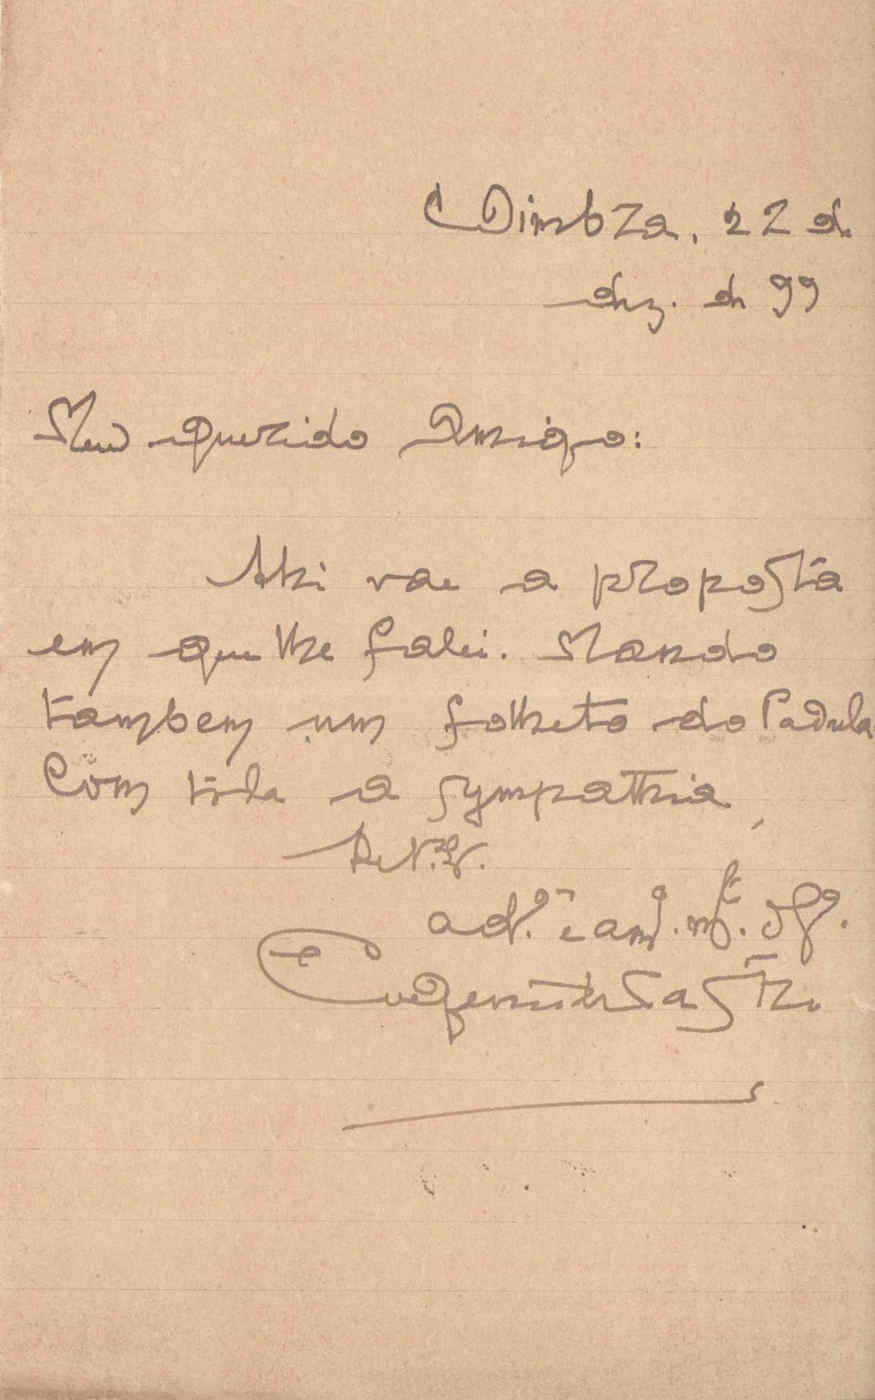 Coimbra, 22 de
dez. de 99
Meu querido Amigo:
Ahi vae a proposta
em que lhe falei. Mando
tambem um folheto do Padula
Com toda a sympathia
De V.
ad.ºr e am.º m.to
Eugenio de Castro